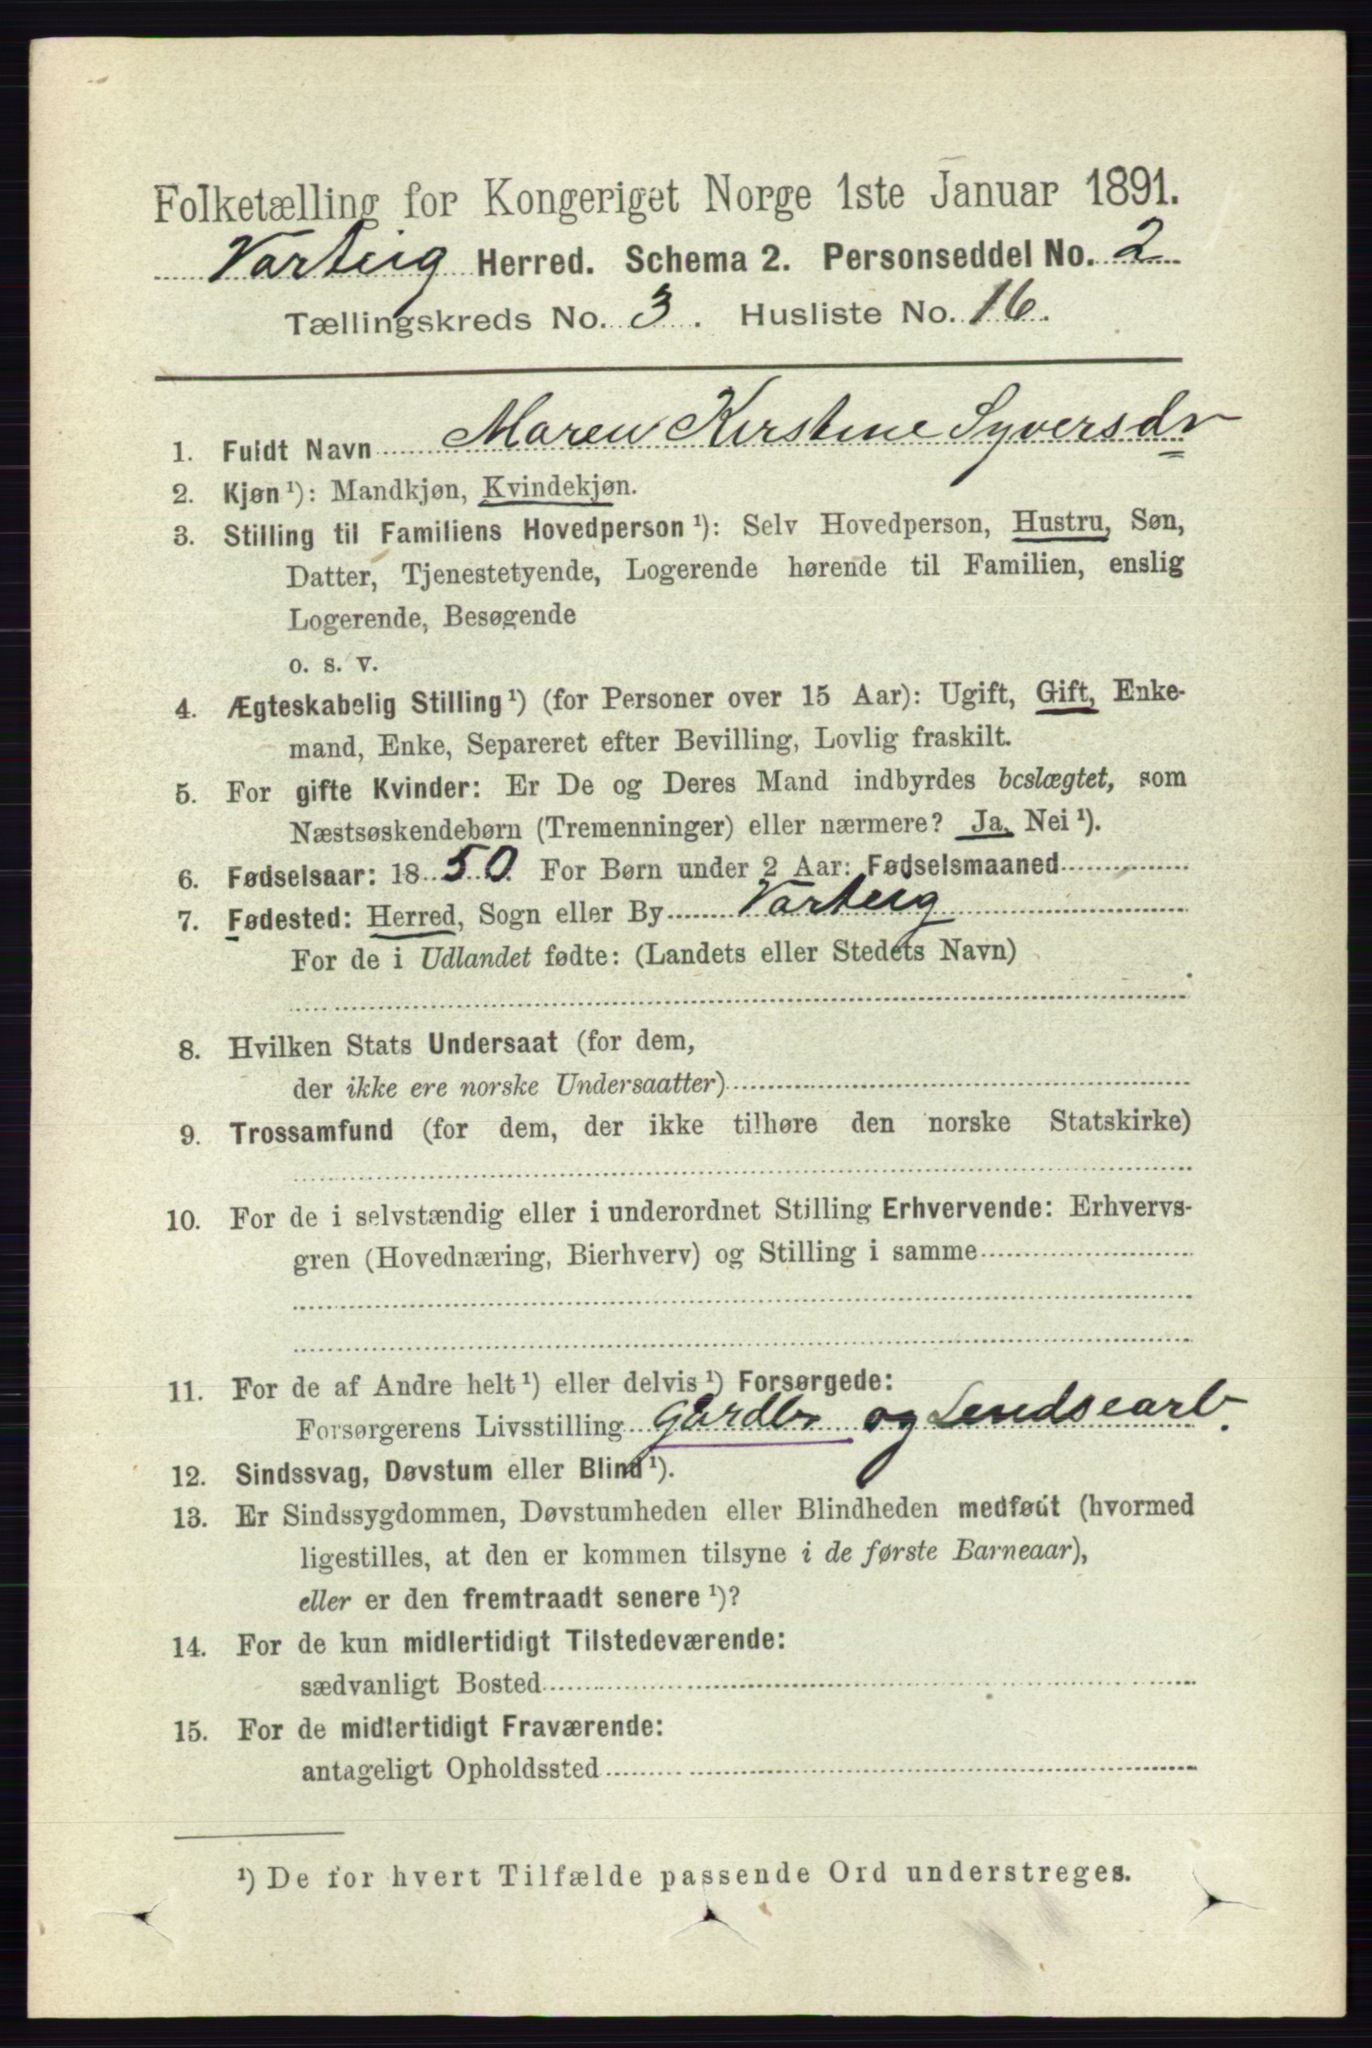 Folketælling for Kongeriget Norge 1ste Januar 1891.
Varteig Herred. Schema 2. Personseddel No. 2
Tællingskreds No. 3. Husliste No. 16.
1. Fuldt Navn Maren Kirstine Syversdr
2. Kjøn¹): Mandkjøn, Kvindekjøn.
3. Stilling til Familiens Hovedperson¹): Selv Hovedperson, Hustru, Søn,
Datter, Tjenestetyende, Logerende hørende til Familien, enslig
Logerende, Besøgende
o. s. v.
4. Ægteskabelig Stilling¹) (for Personer over 15 Aar): Ugift, Gift, Enke-
mand, Enke, Separeret efter Bevilling, Lovlig fraskilt.
5. For gifte Kvinder: Er De og Deres Mand indbyrdes beslægtet, som
Næstsøskendebørn (Tremenninger) eller nærmere? Ja, Nei¹).
6. Fødselsaar: 1850. For Børn under 2 Aar: Fødselsmaaned
7. Fødested: Herred, Sogn eller By Varteig
For de i Udlandet fødte: (Landets eller Stedets Navn)
8. Hvilken Stats Undersaat (for dem,
der ikke ere norske Undersaatter)
9. Trossamfund (for dem, der ikke tilhøre den norske Statskirke)
10. For de i selvstændig eller i underordnet Stilling Erhvervende: Erhvervs-
gren (Hovednæring, Bierhverv) og Stilling i samme
11. For de af Andre helt¹) eller delvis¹) Forsørgede:
Forsørgerens Livsstilling Gårdbr og Lendsearb.
12. Sindssvag, Døvstum eller Blind¹).
13. Er Sindssygdommen, Døvstumheden eller Blindheden medfødt (hvormed
ligestilles, at den er kommen tilsyne i de første Barneaar),
eller er den fremtraadt senere¹)?
14. For de kun midlertidigt Tilstedeværende:
sædvanligt Bosted
15. For de midlertidigt Fraværende:
antageligt Opholdssted
¹) De for hvert Tilfælde passende Ord understreges.